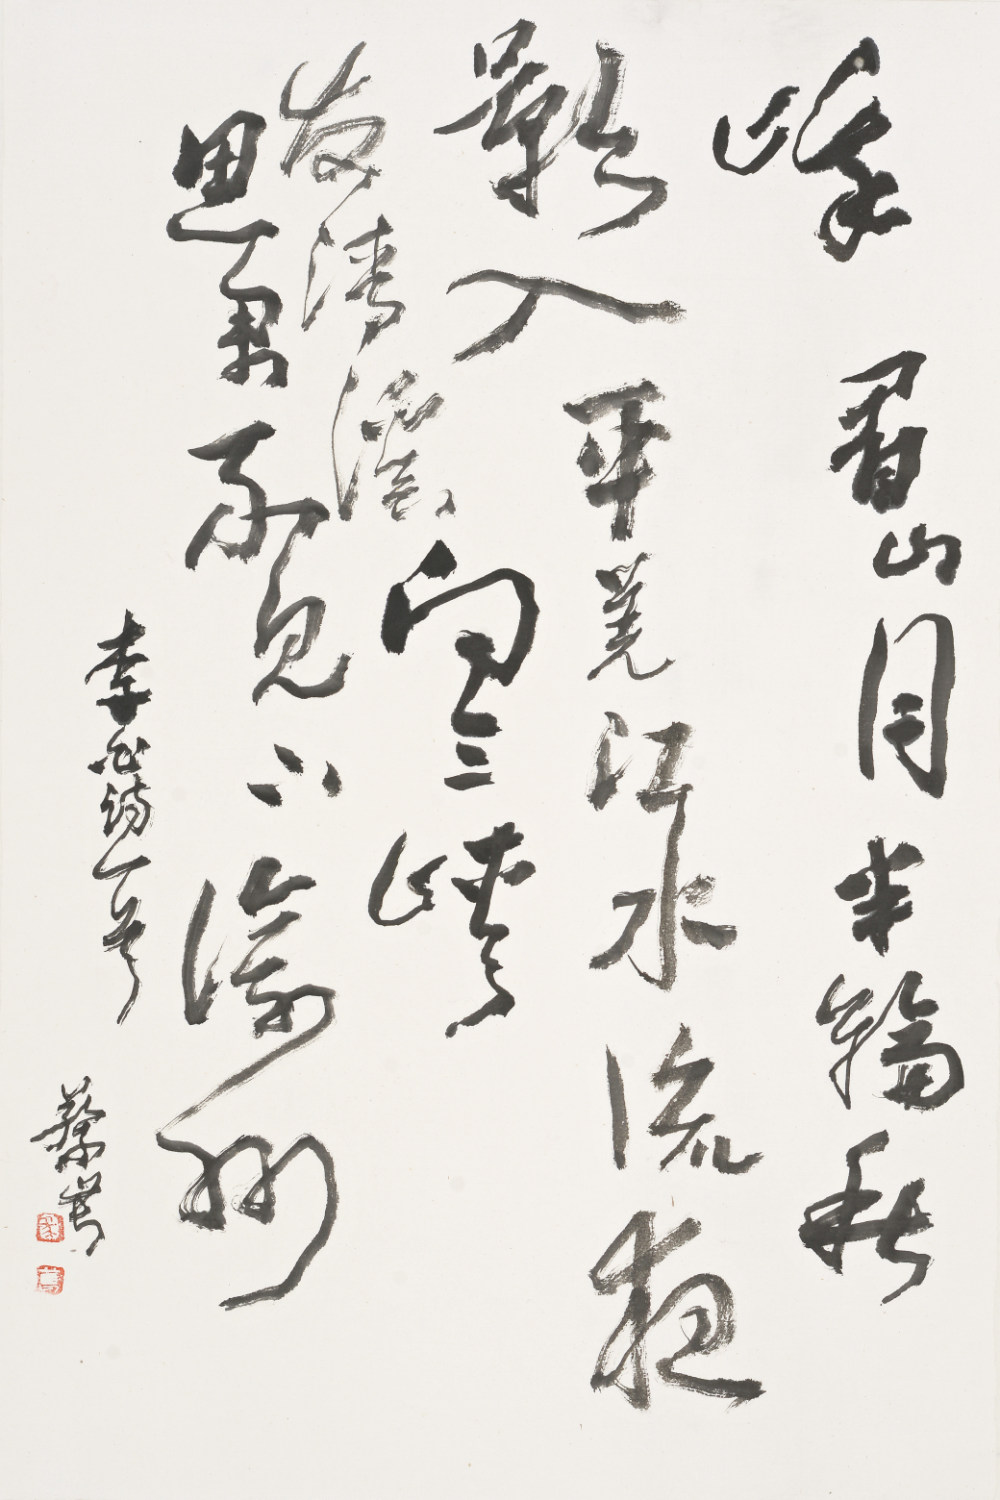 峨眉山月半轮秋
影入平羌江水流夜
发清溪向三峡
思君不见下渝州
李白诗一首
蔡